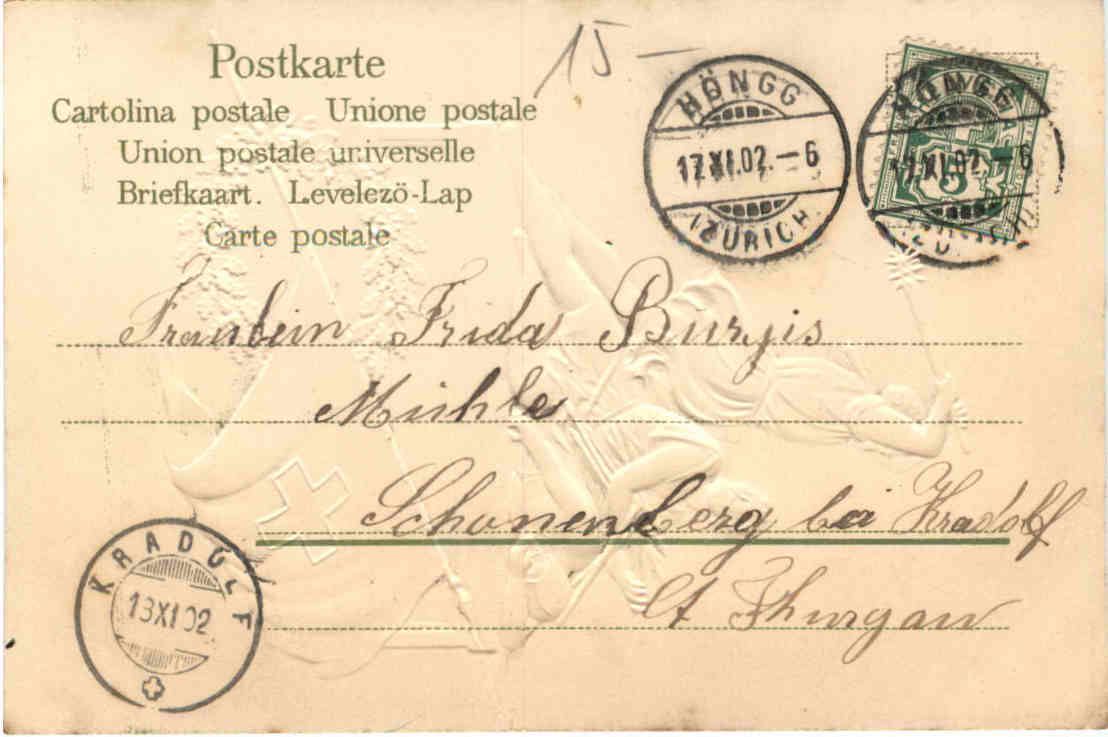 15 –
Postkarte
Cartolina postale Unione postale
Union postale universelle
Briefkaart. Levelezö-Lap
Carte postale
HÖNGG
17.XI.02.–6
(ZÜRICH.
HÖNGG
17.XI.02.–6
5
Fraulein Frida Burgis
Mühle
Schonenberg bei Kradolf
Ct Thurgau
KRADOLF
18XI02